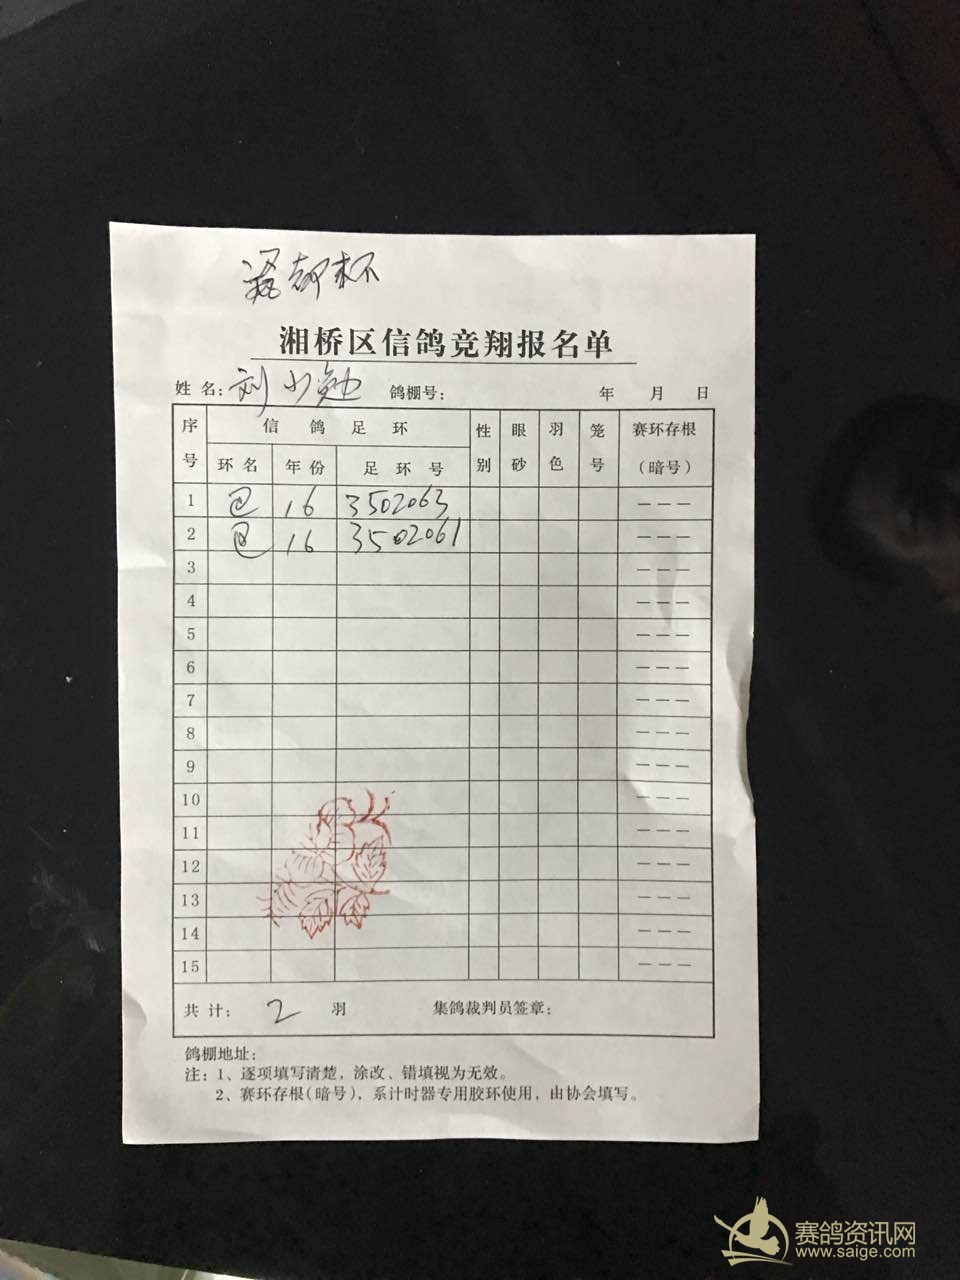 瓷都杯
湘桥区信鸽竞翔报名单
姓 名: 刘小勉 鸽棚号: 年 月 日
序号 信鸽足环 性别 眼砂 羽色 笼号 赛环存根(暗号)
环名 年份 足环号
1 16 3502063 — — —
2 16 3502061 — — —
3 — — —
4 — — —
5 — — —
6 — — —
7 — — —
8 — — —
9 — — —
10 — — —
11 — — —
12 — — —
13 — — —
14 — — —
15 — — —
共 计: 2 羽 集鸽裁判员签章:
鸽棚地址:
注: 1、逐项填写清楚, 涂改、错填视为无效。
2、赛环存根(暗号), 系计时器专用胶环使用, 由协会填写。
赛鸽资讯网
www.saige.com